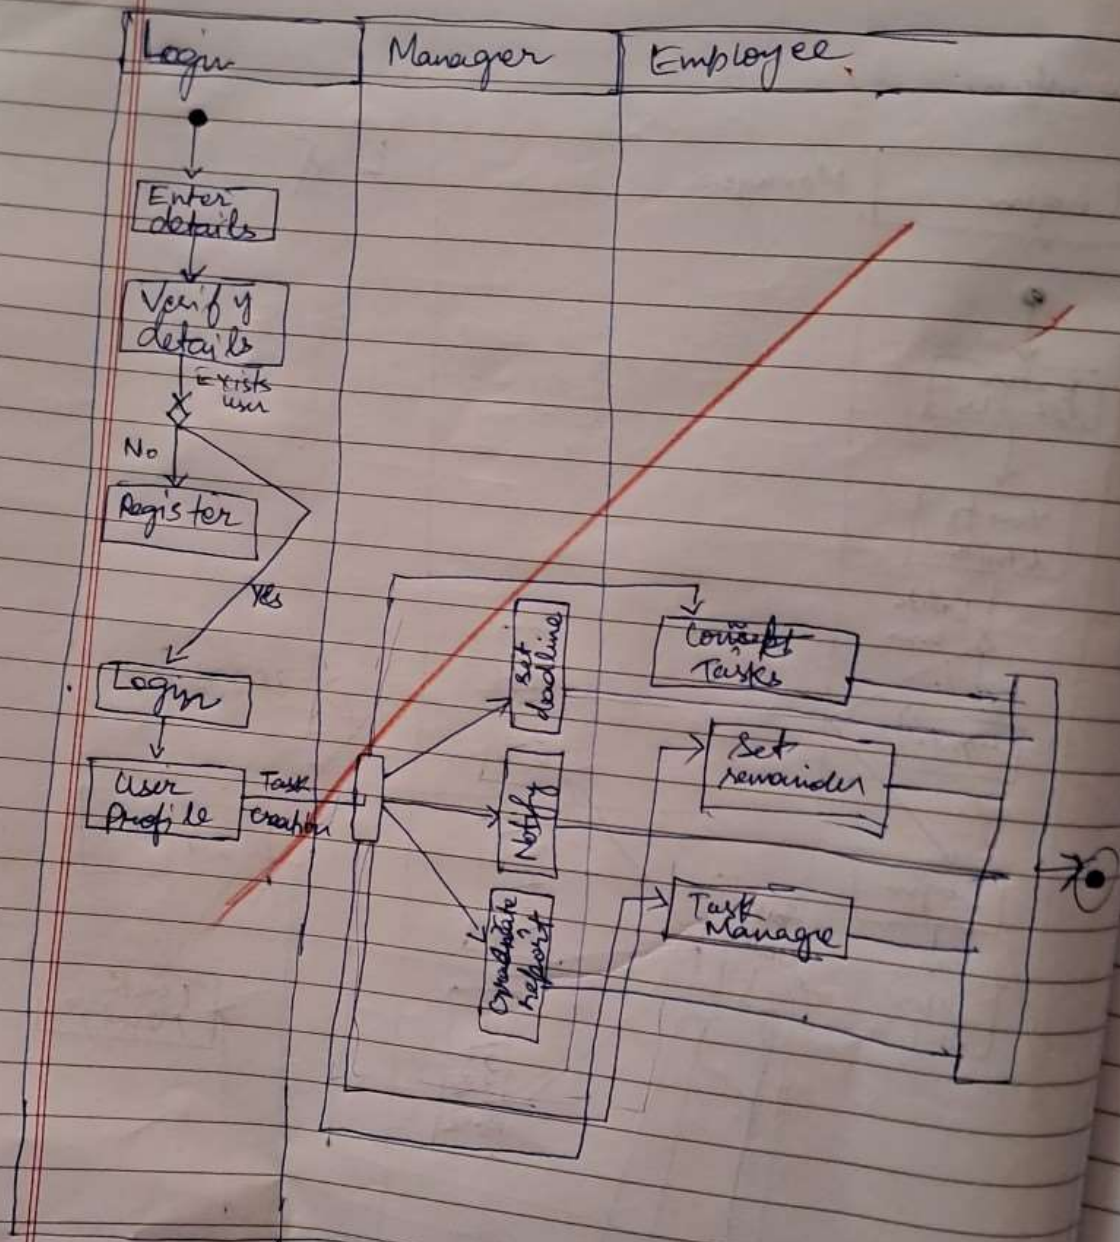 Login
Manager
Employee
Enter
details
Verify
details
Exists
user
No
Register
Yes
Login
User
Profile
Task
creation
Set
deadline
Notify
report
Tasks
Set
remainder
Task
Manage